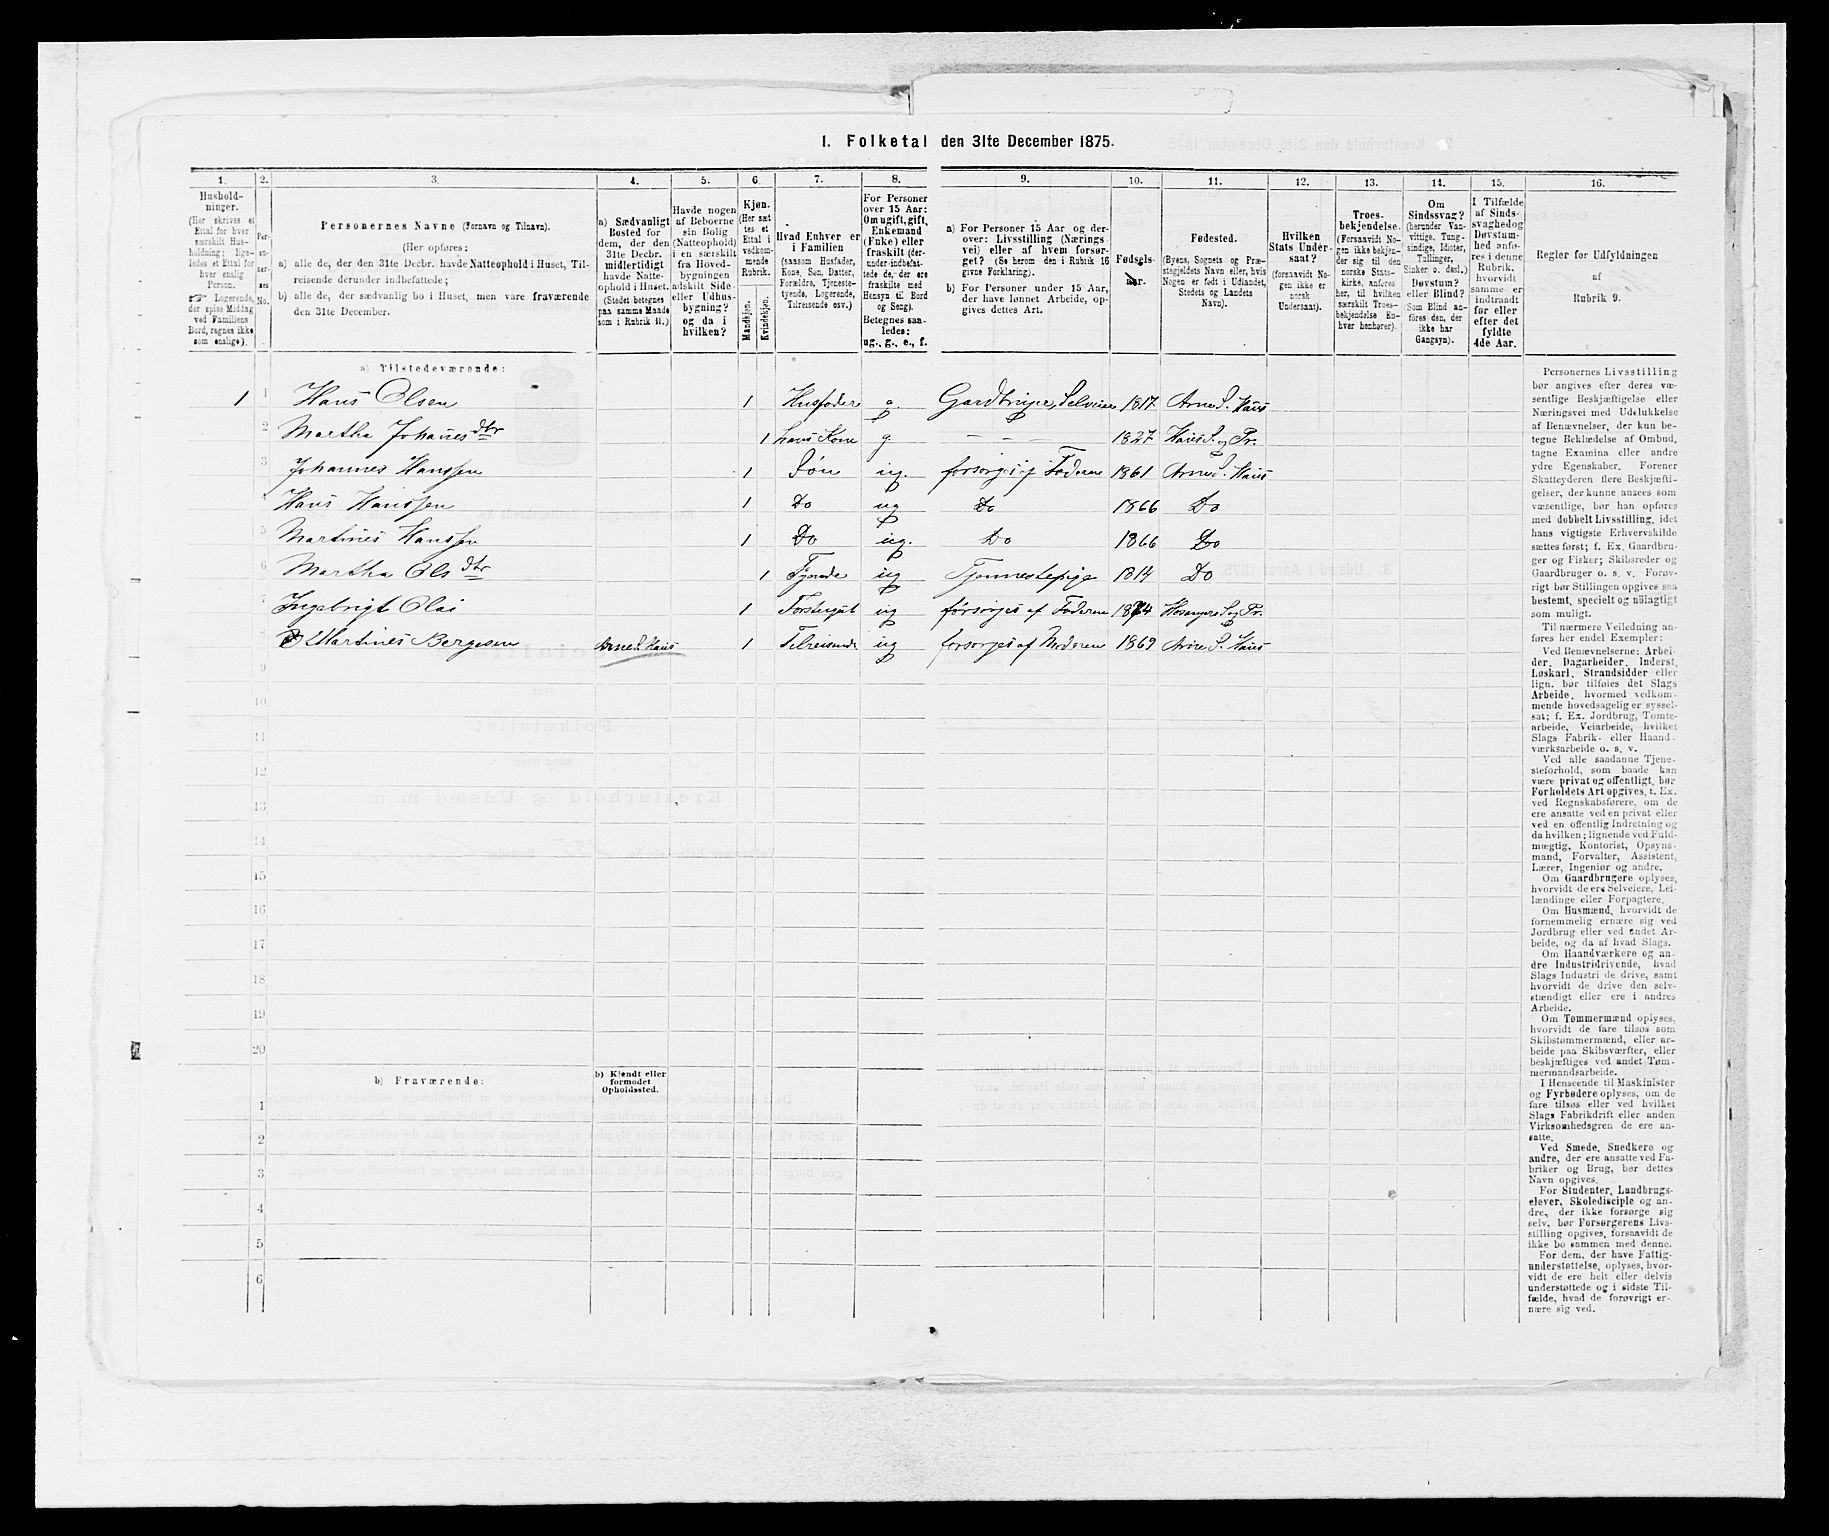 1. Folketal den 31te December 1875.
1. 2. 3. 4. 5. 6. 7. 8. 9. 10. 11. 12. 13. 14. 15. 16.
Hushold-
ninger.
(Her skrives et
Ettal for hver
særskilt Hus-
holdning; lige-
ledes et Ettal for
hver enslig
Person.
Logerende,
der spise Middag
ved Familiens
Bord, regnes ikke
som enslige).
Per-
soner-
nes
No.
Personernes Navne (Fornavn og Tilnavn).
(Her opføres:
a) alle de, der den 31te Decbr. havde Natteophold i Huset, Til-
reisende derunder indbefattede;
b) alle de, der sædvanlig bo i Huset, men vare fraværende
den 31te December.
a) Sædvanligt
Bosted for
dem, der den
31te Decbr.
midlertidigt
havde Natte-
ophold i Huset.
(Stedet betegnes
paa samme Maade
som i Rubrik 11.)
Havde nogen
af Beboerne
sin Bolig
(Natteophold)
i en særskilt
fra Hoved-
bygningen
adskilt Side-
eller Udhus-
bygning?
og da i
hvilken?
Kjøn.
(Her sæt-
tes et
Ettal i
vedkom-
mende
Rubrik.
Mandkjøn.
Kvindekjøn.
Hvad Enhver er
i Familien
(saasom Husfader,
Kone, Søn, Datter,
Forældre, Tjeneste-
tyende, Logerende,
Tilreisende osv.)
For Personer
over 15 Aar:
Om ugift, gift,
Enkemand
(Enke) eller
fraskilt (der-
under indbefat-
tede de, der ere
fraskilte med
Hensyn til Bord
og Seng).
Betegnes saa-
ledes:
ug., g., e., f.
a) For Personer 15 Aar og der-
over: Livsstilling (Nærings-
vei) eller af hvem forsør-
get? (Se herom den i Rubrik 16
givne Forklaring).
b) For Personer under 15 Aar,
der have lønnet Arbeide, op-
gives dettes Art.
Fødsels-
aar.
Fødested.
(Byens, Sognets og Præ-
stegjeldets Navn eller, hvis
Nogen er født i Udlandet,
Stedets og Landets
Navn).
Hvilken
Stats Under-
saat?
(forsaavidt No-
gen ikke er
norsk
Undersaat).
Troes-
bekjendelse.
(Forsaavidt No-
gen ikke bekjen-
der sig til den
norske Stats-
kirke, anføres
her, til hvilken
særskilt Troes-
bekjendelse En-
hver henhører).
Om
Sindssvag?
(herunder Van-
vittige, Tung-
sindige, Idioter,
Tullinger,
Sinker o. desl.)
Døvstum?
eller Blind?
Som Blind an-
føres den, der
ikke har
Gangsyn).
I Tilfælde
af Sinds-
svaghed og
Døvstum-
hed anfø-
res i denne
Rubrik,
hvorvidt
samme er
indtraadt
før eller
efter det
fyldte
4de Aar.
Regler for Udfyldningen
af
Rubrik 9.
a) Tilstedeværende:
1 1 Hans Olsen 1 Husfader g. Gardbruger, Selveier 1817 Arne S. Haus
2 Martha Johanesdtr 1 hans Kone g — — — 1827 Haus S. og Pr.
3 Johannes Hanssen 1 Søn ug. forsørges af Faderen 1861 Arne S. Haus
4 Hans Hanssen 1 Do ug Do 1866 Do
5 Martines Hanssen 1 Do ug. Do 1866 Do
6 Martha Olsdtr 1 Tjende ug Tjenestepige 1814 Do
7 Ingebrigt Olai 1 ug førsorges af Faderen 1874 Hosangers S. og Pr.
8 Martines Bergesen Arne S. Haus 1 Tilreisende ug forsørges af Moderen 1869 Arne S. Haus
9
10
11
12
13
14
15
16
17
18
19
20
b) Fraværende:
b) Kjendt eller
formodet
Opholdssted.
1
2
3
4
5
6
Personernes Livsstilling
bør angives efter deres væ-
sentlige Beskjæftigelse eller
Næringsvei med Udelukkelse
af Benævnelser, der kun be-
tegne Beklædelse af Ombud,
tagne Examina eller andre
ydre Egenskaber. Forener
Skatteyderen flere Beskjæfti-
gelser, der kunne ansees som
væsentlige, bør han opføres
med dobbelt Livsstilling, idet
hans vigtigste Erhvervskilde
sættes først; f. Ex. Gaardbru-
ger og Fisker; Skibsreder og
Gaardbruger o. s. v. Forøv-
rigt bør Stillingen opgives saa
bestemt, specielt og nöiagtigt
som muligt.
Til nærmere Veiledning an-
føres her endel Exempler:
Ved Benævnelserne: Arbei-
der, Dagarbeider, Inderst,
Løskarl, Strandsidder eller
lign. bør tilføies det Slags
Arbeide, hvormed vedkom-
mende hovedsagelig er syssel-
sat; f. Ex. Jordbrug, Tomte-
arbeide, Veiarbeide, hvilket
Slags Fabrik- eller Haand-
værksarbeide o. s. v.
Ved alle saadanne Tjene-
steforhold, som baade kan
være privat og offentligt, bør
Forholdets Art opgives, t. Ex.
ved Regnskabsførere, om de
ere ansatte ved en privat eller
ved en offentlig Indretning og
da hvilken; lignende ved Fuld-
mægtig, Kontorist, Opsyns-
mand, Forvalter, Assistent,
Lærer, Ingeniør og andre.
Om Gaardbrugere oplyses,
hvorvidt de ere Selveiere, Lei-
lændinge eller Forpagtere.
Om Husmænd, hvorvidt de
fornemmelig ernære sig ved
Jordbrug eller ved andet Ar-
beide, og da af hvad Slags.
Om Haandværkere og an-
dre Industridrivende, hvad
Slags Industri de drive, samt
hvorvidt de drive den selv-
stændigt eller ere i andres
Arbeide.
Om Tømmermænd oplyses,
hvorvidt de fare tilsøs som
Skibstømmermænd, eller ar-
beide paa Skibsværfter, eller
beskjæftiges ved andet Tøm-
mermandsarbeide.
I Henseende til Maskinister
og Fyrbødere oplyses, om de
fare tilsøs eller ved hvilket
Slags Fabrikdrift eller anden
Virksomhedsgren de ere an-
satte.
Ved Smede, Snedkere og
andre, der ere ansatte ved Fa-
briker og Brug, bør dettes
Navn opgives.
For Studenter, Landbrugs-
elever, Skoledisciple og an-
dre, der ikke forsørge sig
selv, bør Forsørgerens Livs-
stilling opgives, forsaavidt de
ikke bo sammen med denne.
For dem, der have Fattig-
understøttelse, oplyses, hvor-
vidt de ere helt eller delvis
understøttede og i sidste Til-
fælde, hvad de forøvrigt er-
nære sig ved.